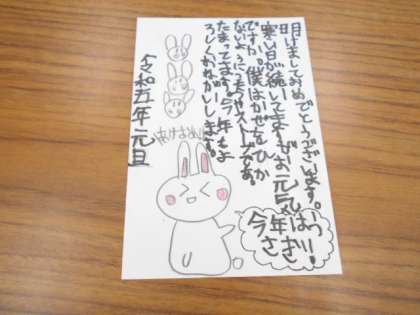 明けましておめでとうございます。
寒い日が続いてますがお元気
ですか。僕はかぜをひか
ないようにこたつやストーブであ
たまってます。今年もよ
ろしくおねがいします。
令和五年元旦
あけおめ!!
今年は
うさぎ!!